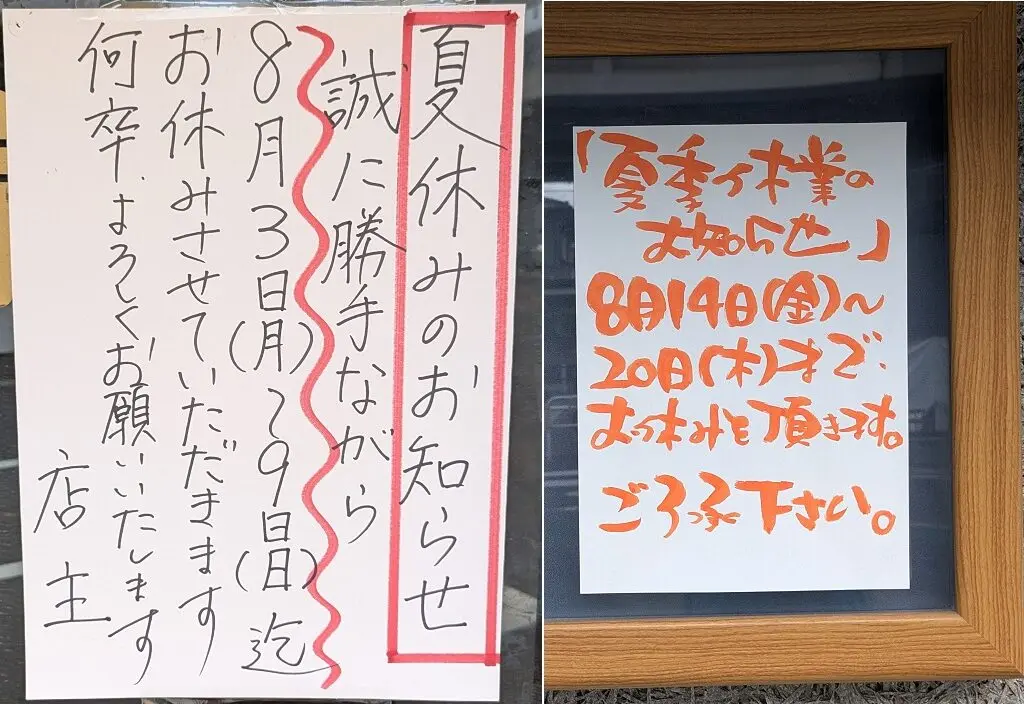 夏休みのお知らせ
誠に勝手ながら
8月3日(月)〜9日(日)迄
お休みさせていただきます
何卒よろしくお願いいたします
店主
「夏季休業の
お知らせ」
8月14日(金)〜
20日(木)まで、
お休みを頂きます。
ご了承下さい。